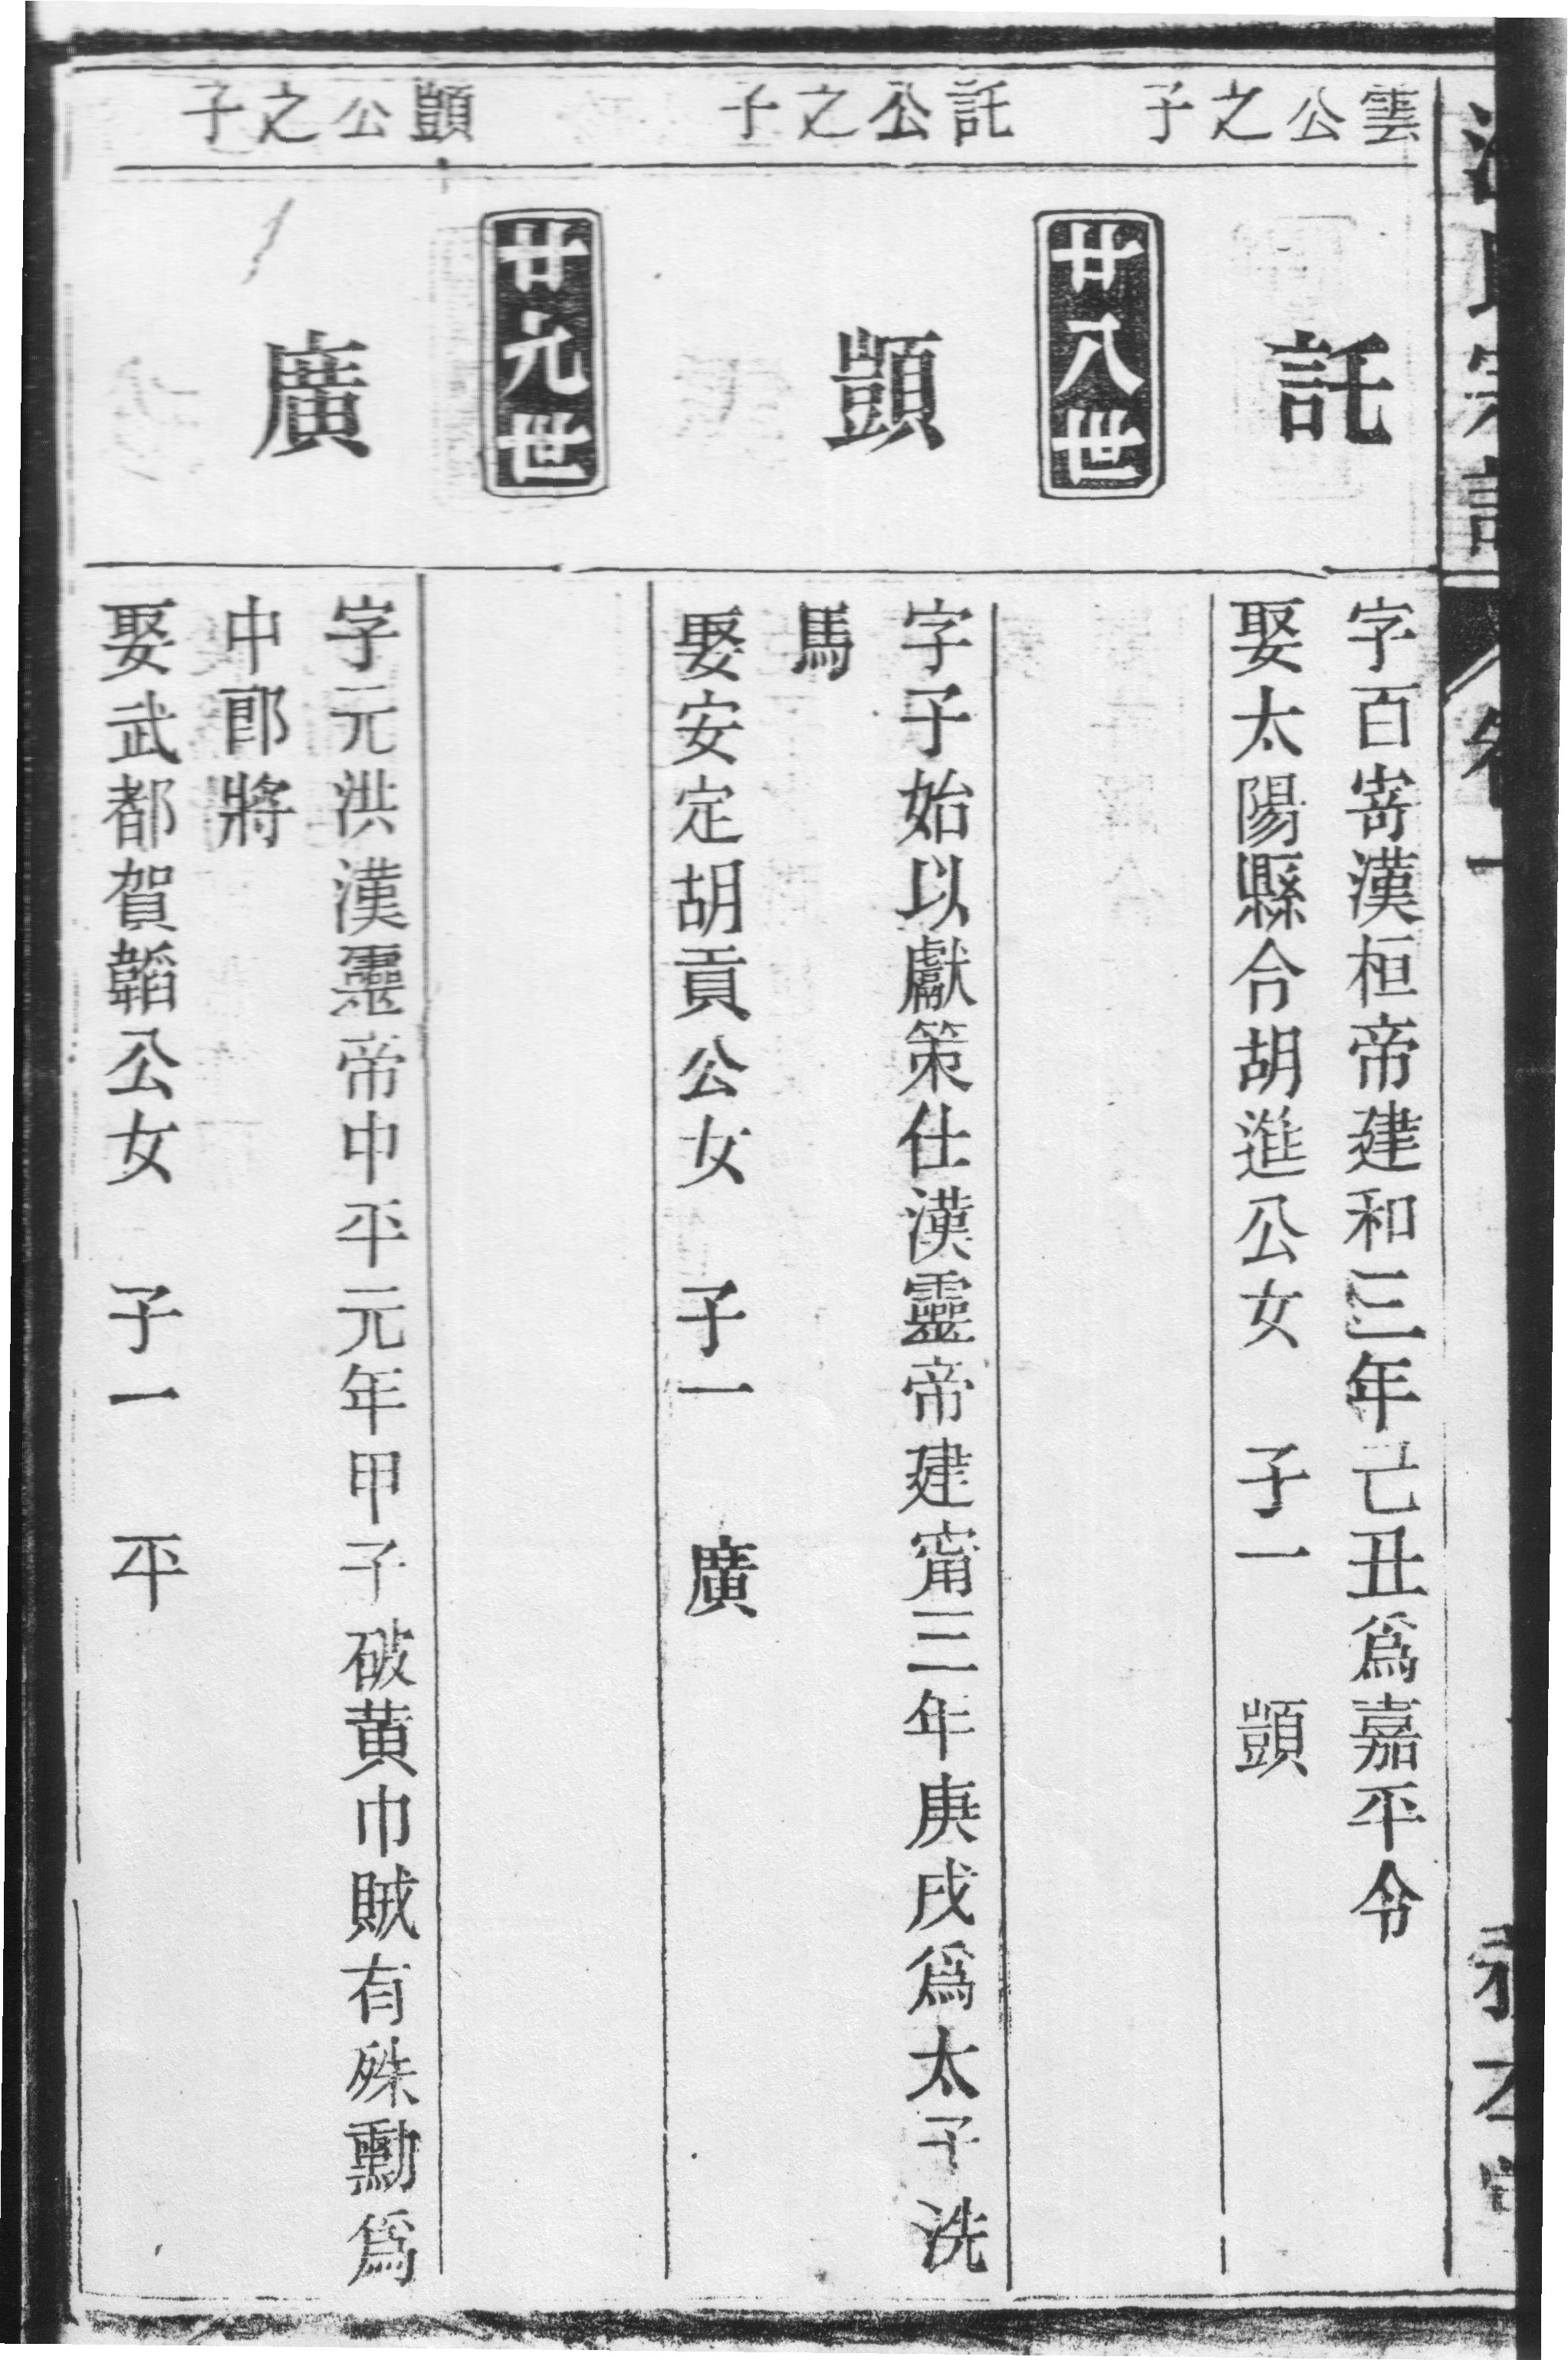 卷一
雲公之子
託
字百嵜漢桓帝建和三年己丑爲嘉平令
娶太陽縣令胡進公女　子一　顗
託公之子
廿八世
顗
字子始以獻策仕漢靈帝建甯三年庚戌爲太子洗
馬
娶安定胡貢公女　子一　廣
顗公之子
廿九世
廣
字元洪漢靈帝中平元年甲子破黄巾賊有殊勳爲
中郎將
娶武都賀韜公女　子一　平